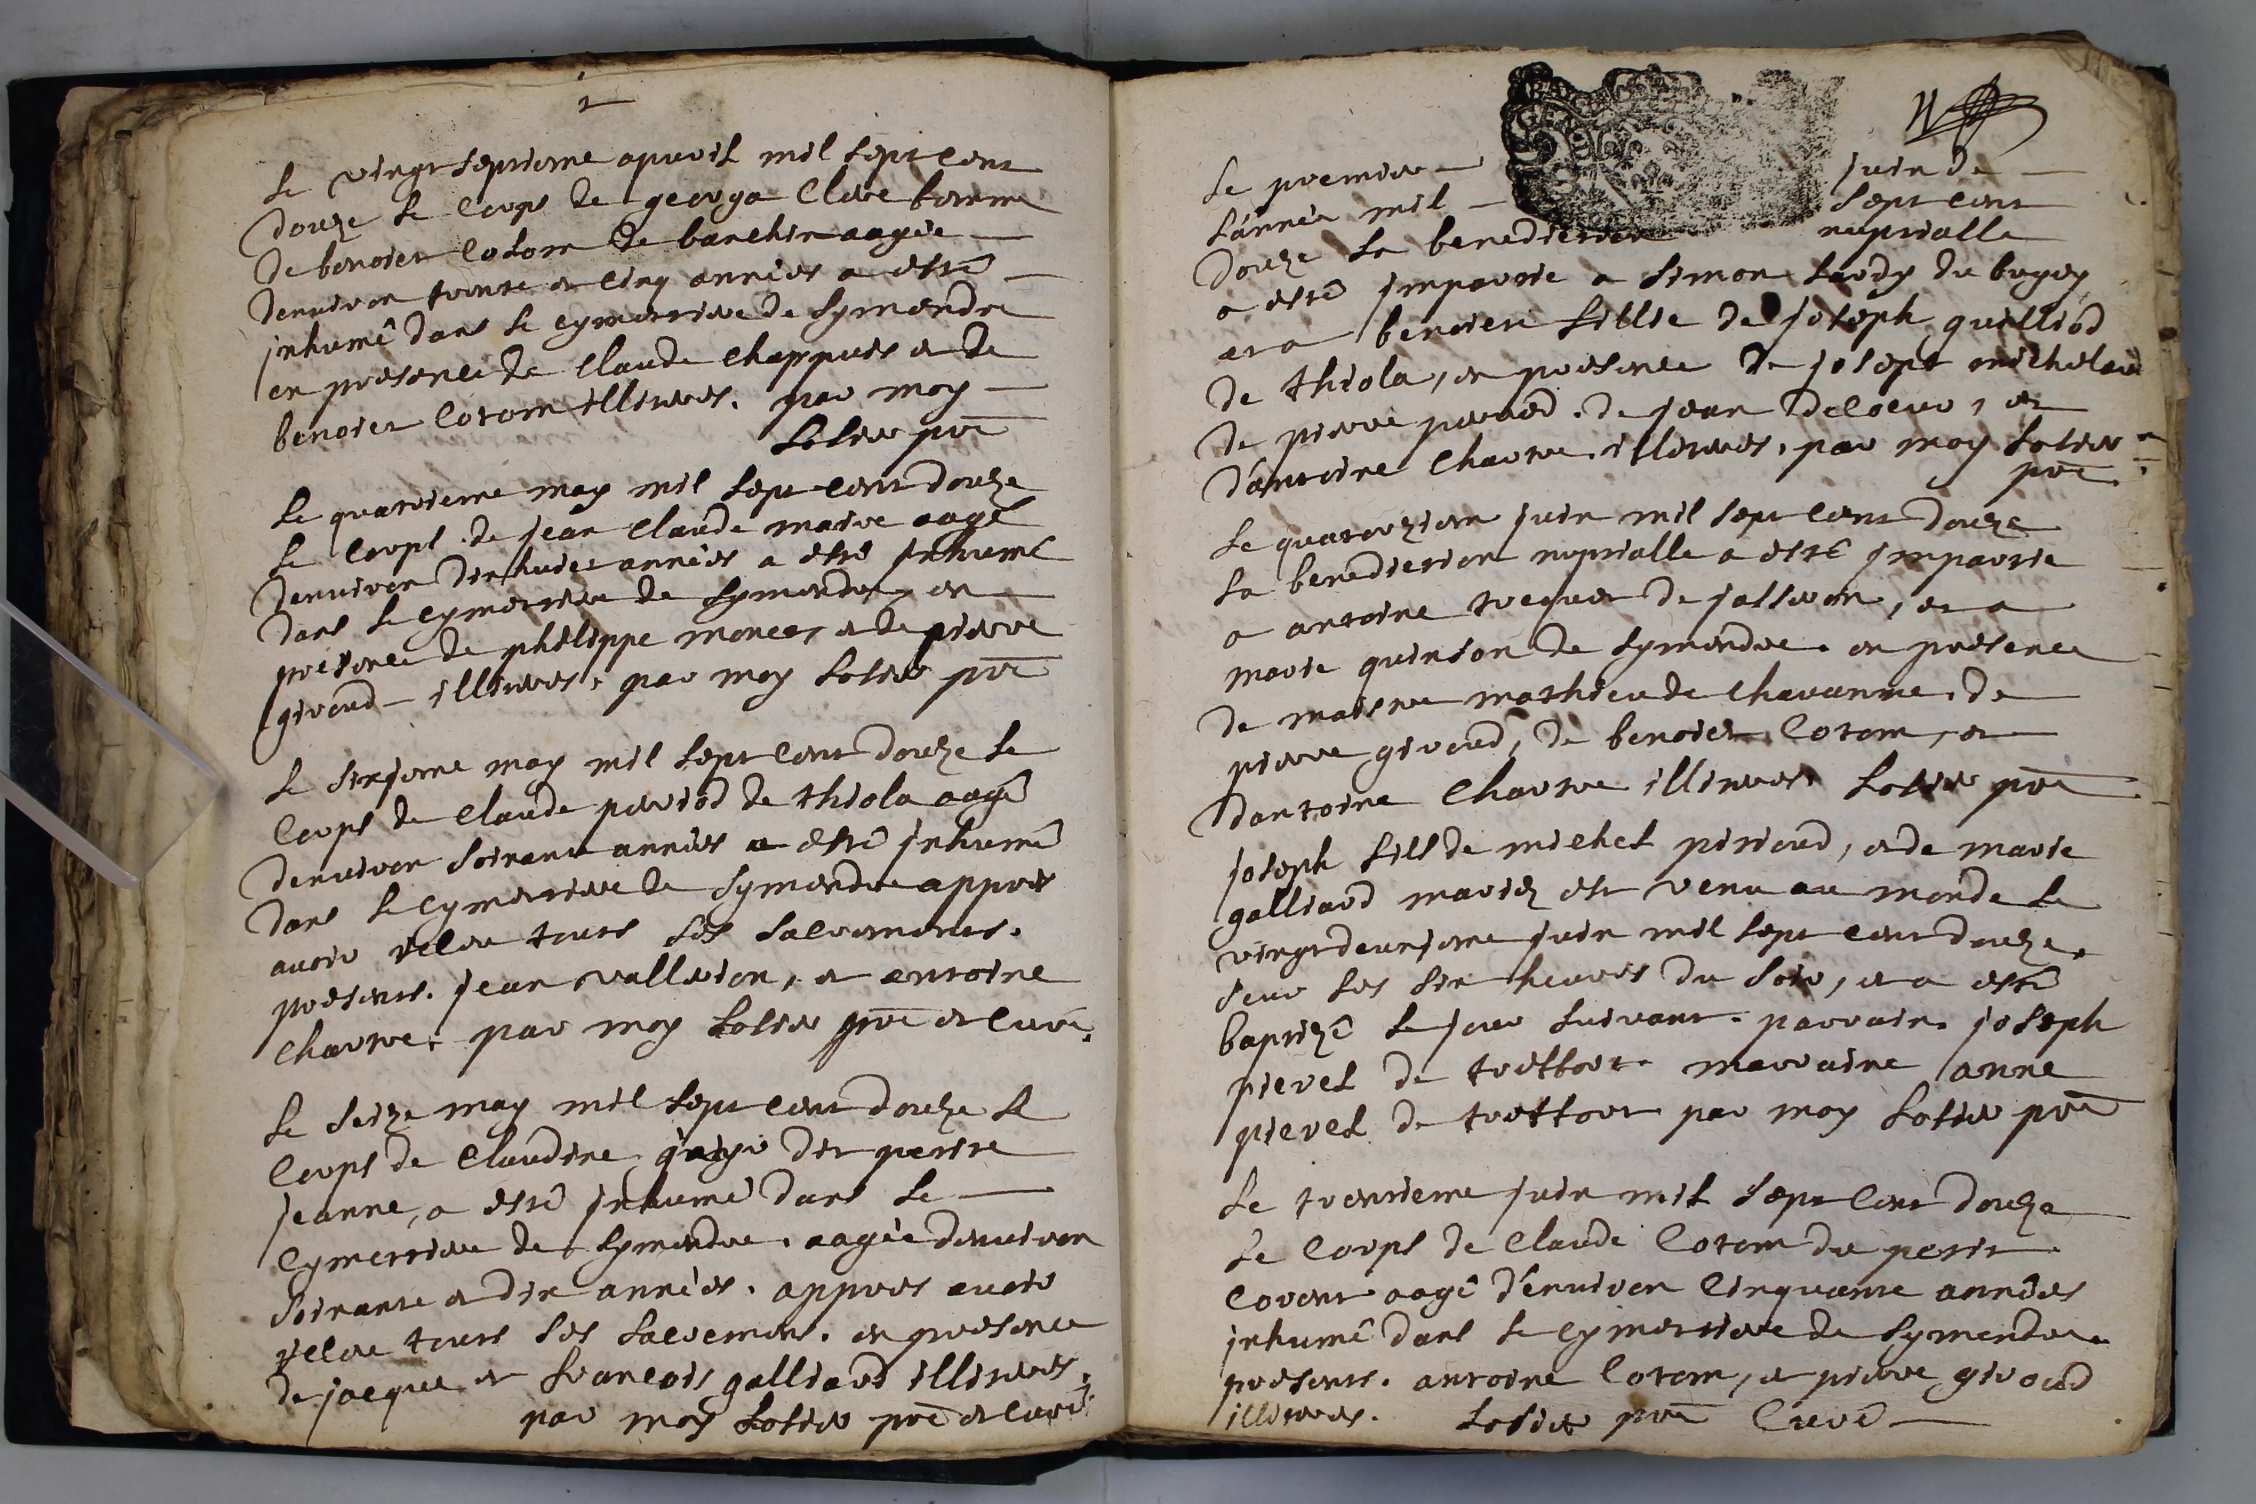 Le vingtseptieme apuril mil sept cent
douze le corps de georga Clere femme
de benoict Cotom de banchin aagée
denuiron trente et cinq années a estté
jnhumé dans le cymettiere de Symendre
en presence de Claude Chappuis et de
benoict Cotom illiteres. par moy
Lotier pre
Le quatrieme may mil sept cent douze
le corps de jean Claude maire aagé
denuiron dixhuict années a esté jnhumé
dans le cymettiere de Symendre, en
presence de philippe moncet et de pierre
giroud illiteres, par moy Lotier pre
Le sixjeme may mil sept cent douze le
corps de Claude perriod de thiola aagé
denuiron soixante années a esté jnhumé
dans le cymettiere de Symendre appres
auoir receu touts ses sacrements.
presents. jean vallerion, et antoine
Chartre. par moy Lotier pre et curé.
Le seize may mil sept cent douze le
corps de Claudine dit petite
jeanne, a esté jnhumé dans le
cymettiere de Symendre. aagée denuiron
soixante et dix années. appres auoir
receu touts ses sacremens. en presence
de jacque et francois galliard illiteres.
par moy Lotier pre et curé
Le premier juin de
L'année mil sept cent
douze La benediction nuptialle
a esté jmpartie a Simon Lardy du bugey
et a benoicte fillie de joseph quilliod
de thiola, en presence de josept michelard
de pierre perrod. de jean deloeur, et
d'antoine Chartre. illiteres, par moy Lotier
pre
Le quatorzieme juin mil sept cent douze
La benediction nuptialle a esté jmpartie
a antoine tocquet de jasseron, et a
marie quinson de Symendre. en presence
de maistre mathieu de Chauanne. de
pierre giroud, de benoict Cotom, et
dantoine Chartre illiteres Lotier pre
joseph fils de michel piriaud, et de marie
galliard mariez est venu au monde le
vingtdeuxjeme juin mil sept cent douze.
seur les six heures du soir, et a esté
baptizé le jour suiuant. parrain. joseph
pievet de treffort. marraine anne
pievet de treffort par moy Lotier pre
Le trentieme juin mil sept cent douze
Le corps de Claude Cotom du petit
Corent aagé d'enuiron cinquante années
jnhumé dans le cymettiere de Symendre.
presents. antoine Cotom, et pierre giroud
illiteres. Lotier pre curé